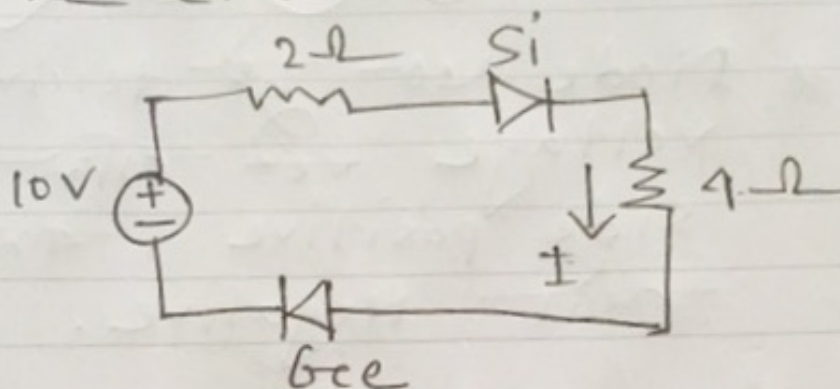 2Ω
Si
10V
+
−
4Ω
I
Gee